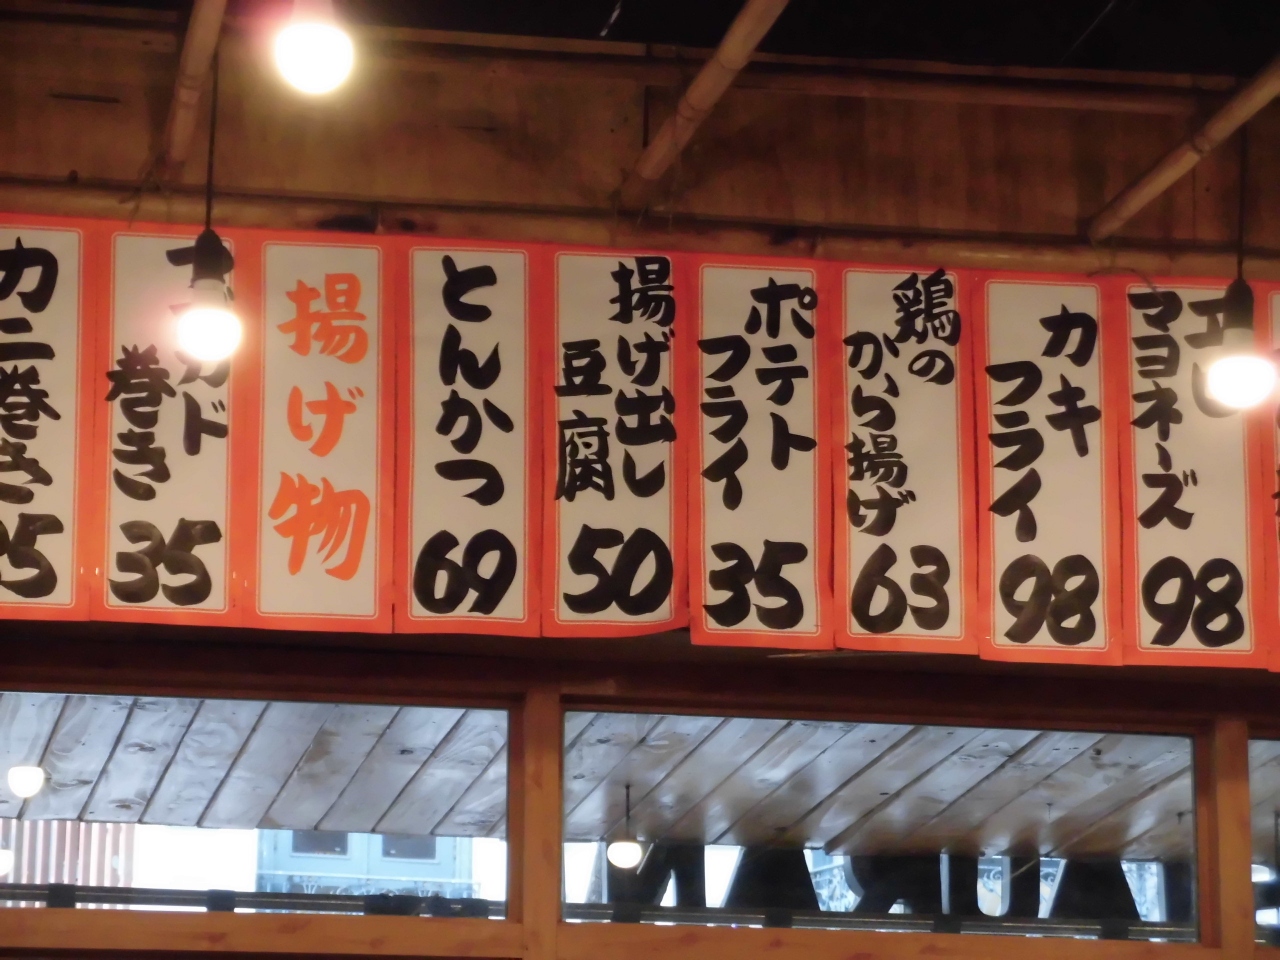 カニ巻き
巻き
35
揚げ物
とんかつ
69
揚げ出し
豆腐
50
ポテト
フライ
35
鶏の
から揚げ
63
カキ
フライ
98
マヨネーズ
98